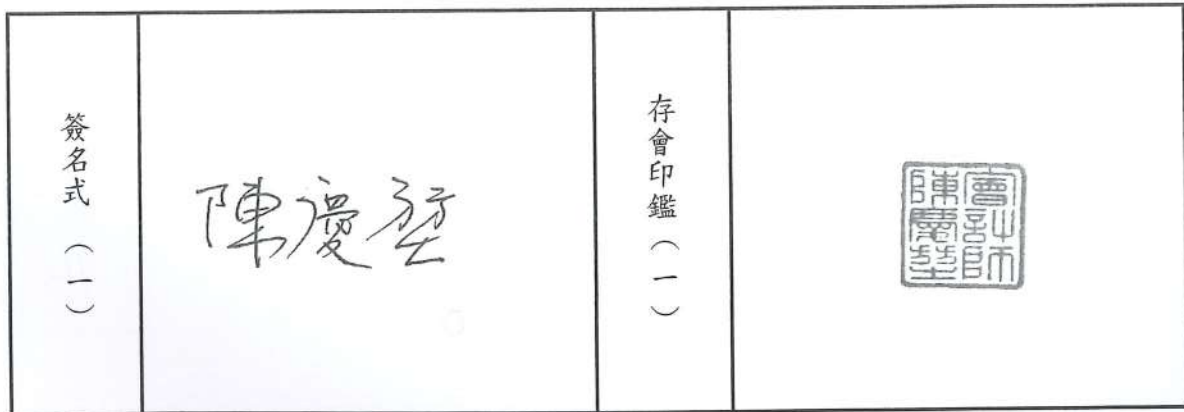 簽名式（一）
陳慶堃
存會印鑑（一）
會計師
陳慶堃